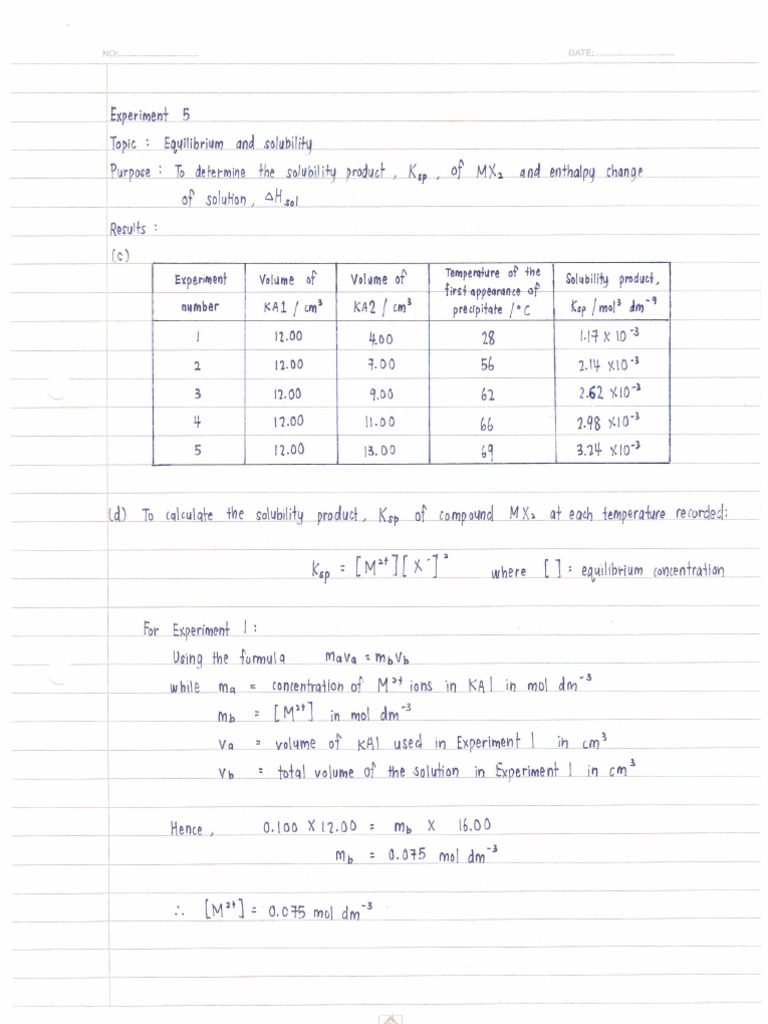 NO: DATE:
Experiment 5
Topic : Equilibrium and solubility
Purpose : To determine the solubility product, Ksp, of MX₂ and enthalpy change
of solution, ΔHsol
Results :
(c)
Experiment number | Volume of KA1 / cm³ | Volume of KA2 / cm³ | Temperature of the first appearance of precipitate /°C | Solubility product, Ksp / mol³ dm⁻⁹
1 | 12.00 | 4.00 | 28 | 1.17 × 10⁻³
2 | 12.00 | 7.00 | 56 | 2.14 ×10⁻³
3 | 12.00 | 9.00 | 62 | 2.62 ×10⁻³
4 | 12.00 | 11.00 | 66 | 2.98 ×10⁻³
5 | 12.00 | 13.00 | 69 | 3.24 ×10⁻³
(d) To calculate the solubility product, Ksp of compound MX₂ at each temperature recorded:
Ksp = [M²⁺][X⁻]² where [ ] : equilibrium concentration
For Experiment 1:
Using the formula mava = mbvb
while ma = concentration of M²⁺ ions in KA1 in mol dm⁻³
mb = [M²⁺] in mol dm⁻³
va = volume of KA1 used in Experiment 1 in cm³
vb = total volume of the solution in Experiment 1 in cm³
Hence, 0.100 × 12.00 = mb × 16.00
mb = 0.075 mol dm⁻³
∴ [M²⁺] = 0.075 mol dm⁻³